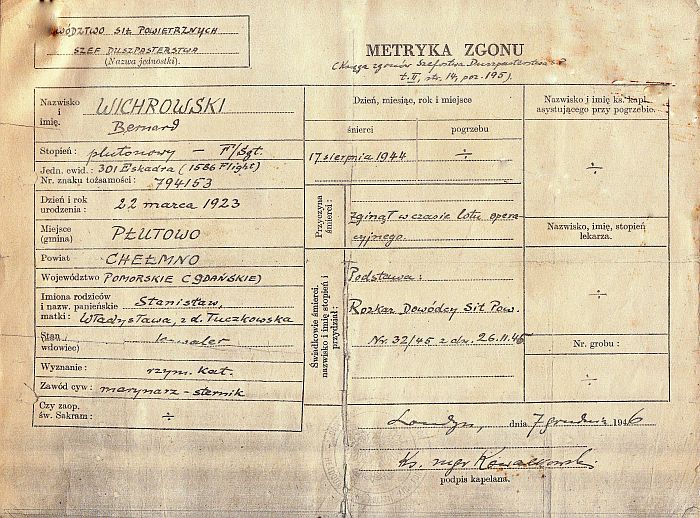 DOWÓDZTWO SIŁ POWIETRZNYCH
SZEF DUSZPASTERSTWA
(Nazwa jednostki).
METRYKA ZGONU
(Księga zgonów Szefostwa Duszpasterstwa
t. II, str. 14, poz. 195).
Nazwisko i imię.
WICHROWSKI
Bernard
Stopień: plutonowy – F/Sgt.
Jedn. ewid.: 301 Eskadra (1586 Flight)
Nr. znaku tożsamości: 794153
Dzień i rok urodzenia: 22 marca 1923
Miejsce (gmina) PŁUTOWO
Powiat CHEŁMNO
Województwo POMORSKIE (GDAŃSKIE)
Imiona rodziców i nazw. panieńskie matki:
Stanisław,
Władysława, z d. Tuczkowska
Stan (wdowiec) kawaler
Wyznanie: rzym. kat.
Zawód cyw: marynarz – sternik
Czy zaop. św. Sakram: ÷
Dzień, miesiąc, rok i miejsce
śmierci
pogrzebu
17 sierpnia 1944
÷
Przyczyna śmierci:
Zginął w czasie lotu opera-
cyjnego.
Świadkowie śmierci, nazwisko i imię stopień i przydział:
Podstawa:
Rozkaz Dowódcy Sił Pow.
Nr. 32/45 z dn. 26.11.45
Nazwisko i imię ks. kapl. asystującego przy pogrzebie.
÷
Nazwisko, imię, stopień lekarza.
÷
Nr. grobu:
÷
Londyn, dnia 7 grudnia 1946
Ks. mgr Kowalkowski
podpis kapelana.